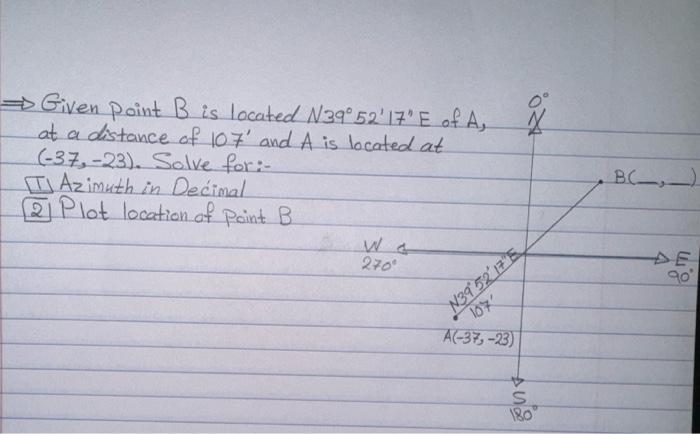 ⇒ Given point B is located N39°52'17"E of A,
at a distance of 107' and A is located at
(-37, -23). Solve for:-
1 Azimuth in Decimal
2 Plot location of Point B
0°
N
B(__,__)
W
270°
E
90°
N39°52'17"E
107'
A(-37, -23)
S
180°